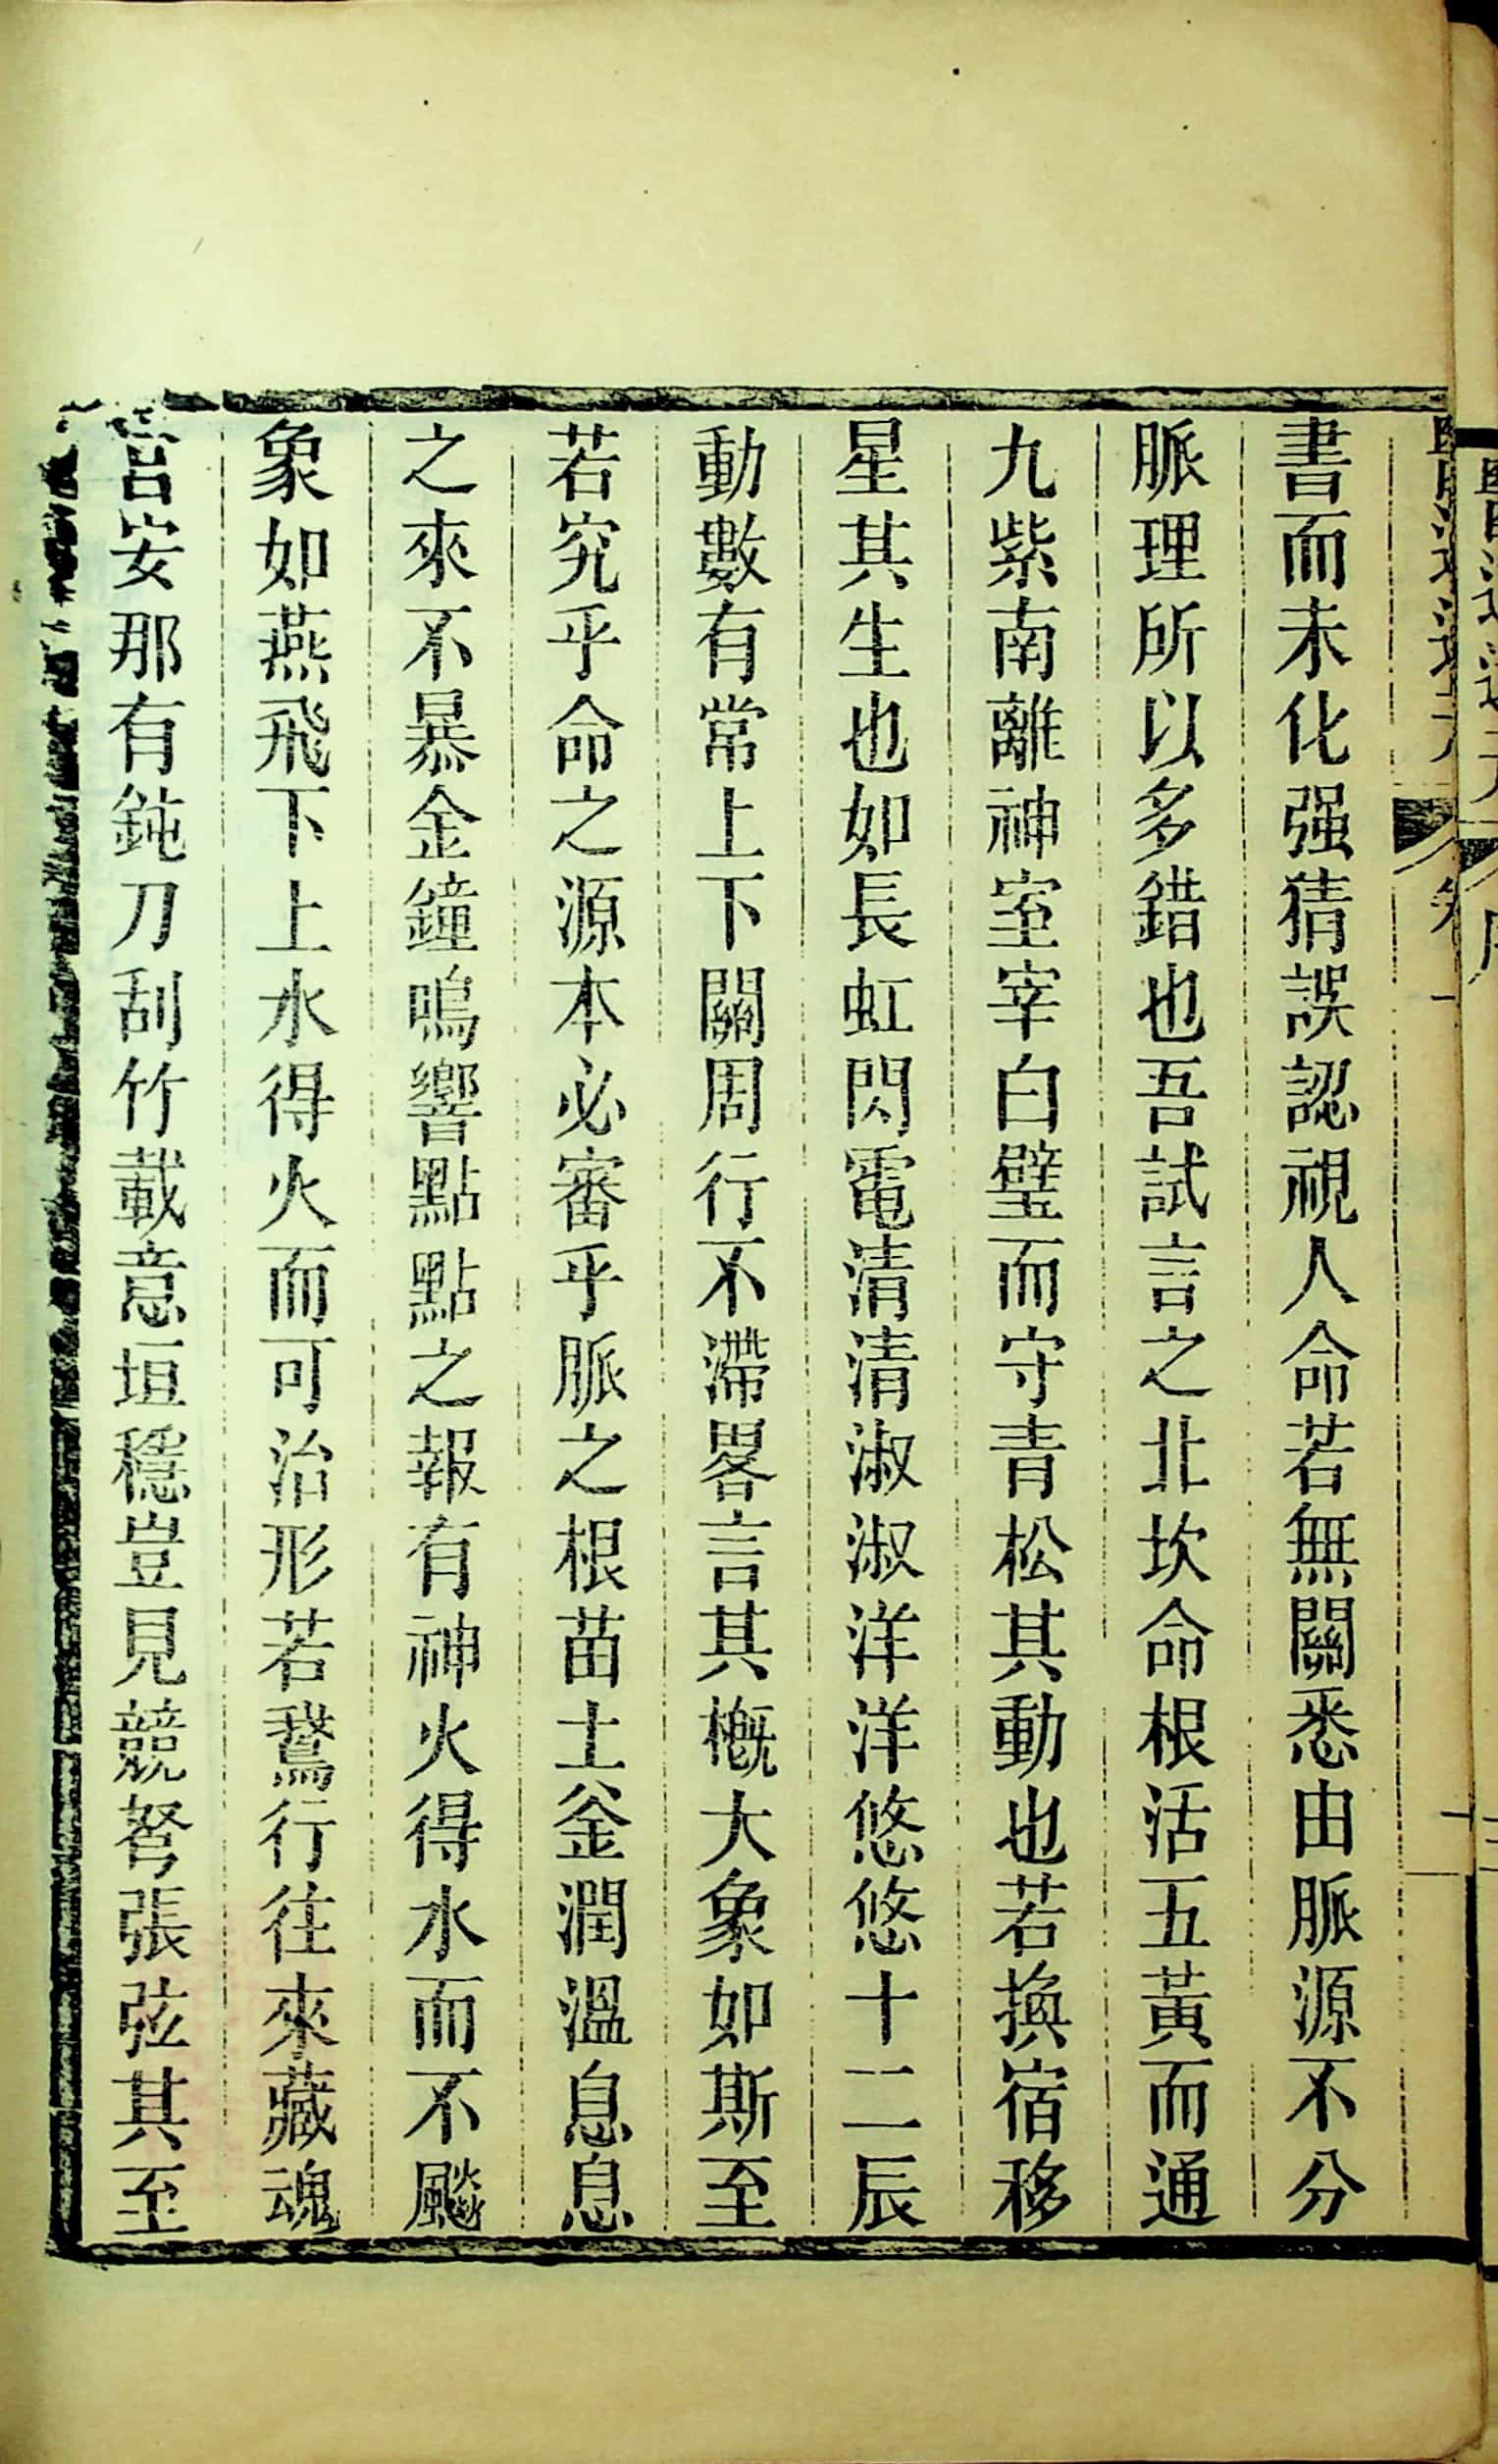 書而未化强猜誤認視人命若無關悉由脈源不分
脈理所以多錯也吾試言之北坎命根活五黃而通
九紫南離神室宰白璧而守青松其動也若換宿移
星其生也如長虹閃電清清淑淑洋洋悠悠十二辰
動數有常上下關周行不滯畧言其槪大象如斯至
若究乎命之源本必審乎脈之根苗土釜潤溫息息
之來不暴金鐘鳴響點點之報有神火得水而不飈
象如燕飛下上水得火而可治形若鵞行往來藏魂
宮安那有鈍刀刮竹載意垣穩豈見競弩張弦其至